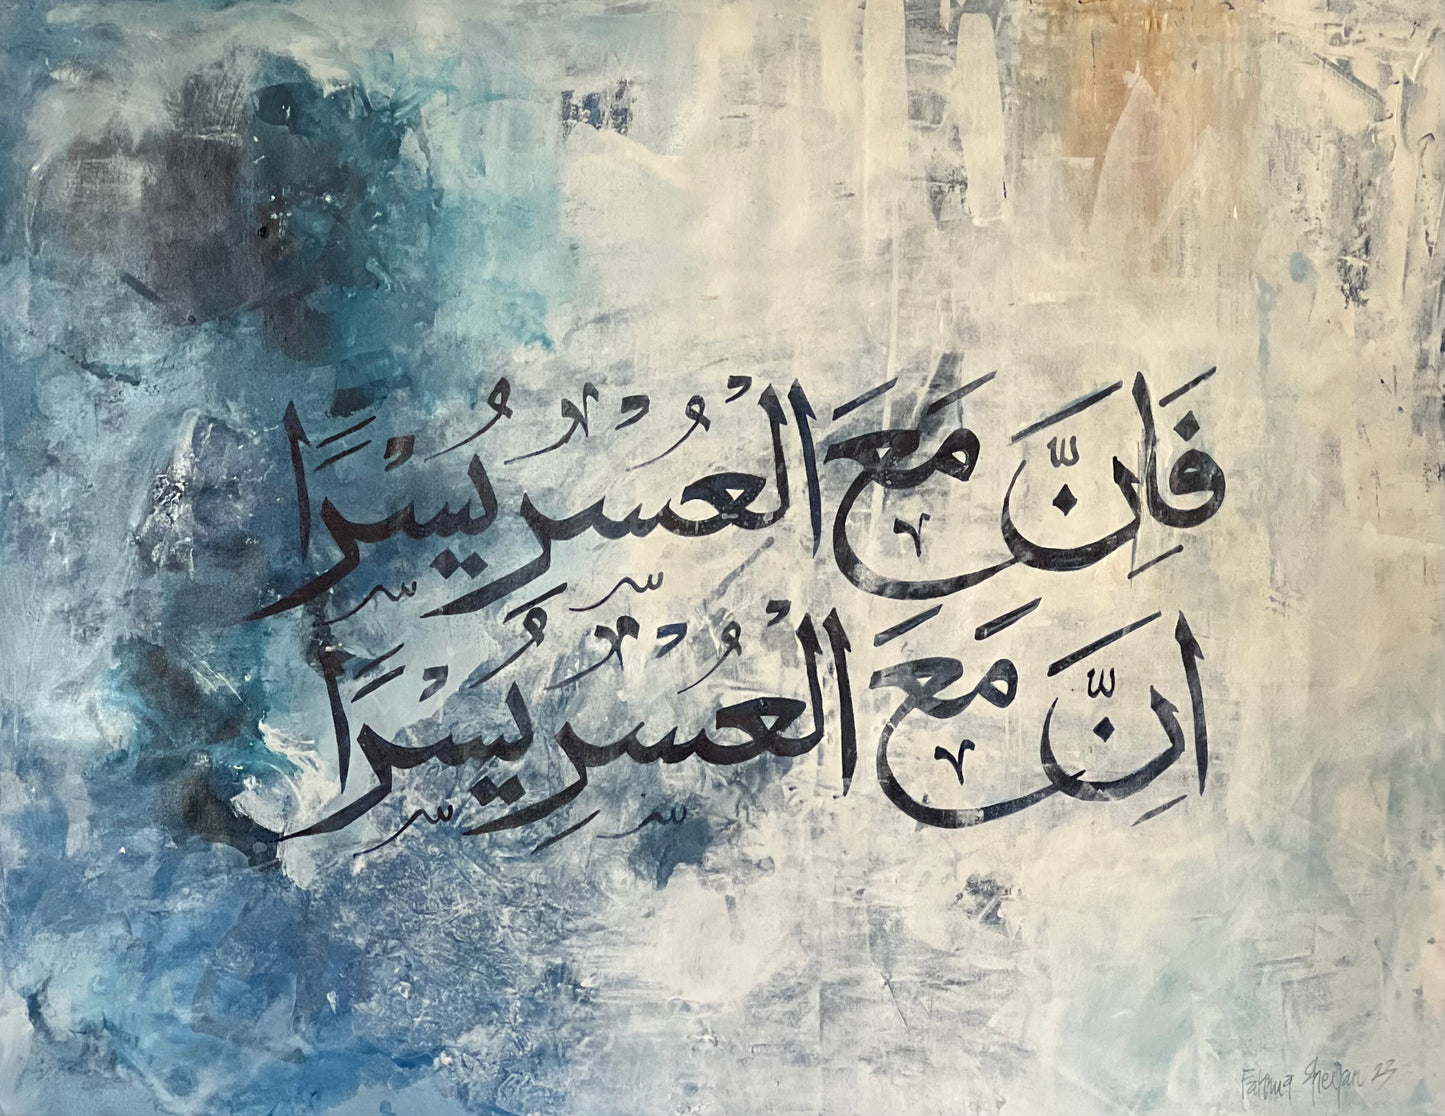 فَاِنَّ مَعَ الْعُسْرِ يُسْرًا
اِنَّ مَعَ الْعُسْرِ يُسْرًا
Fatima 23